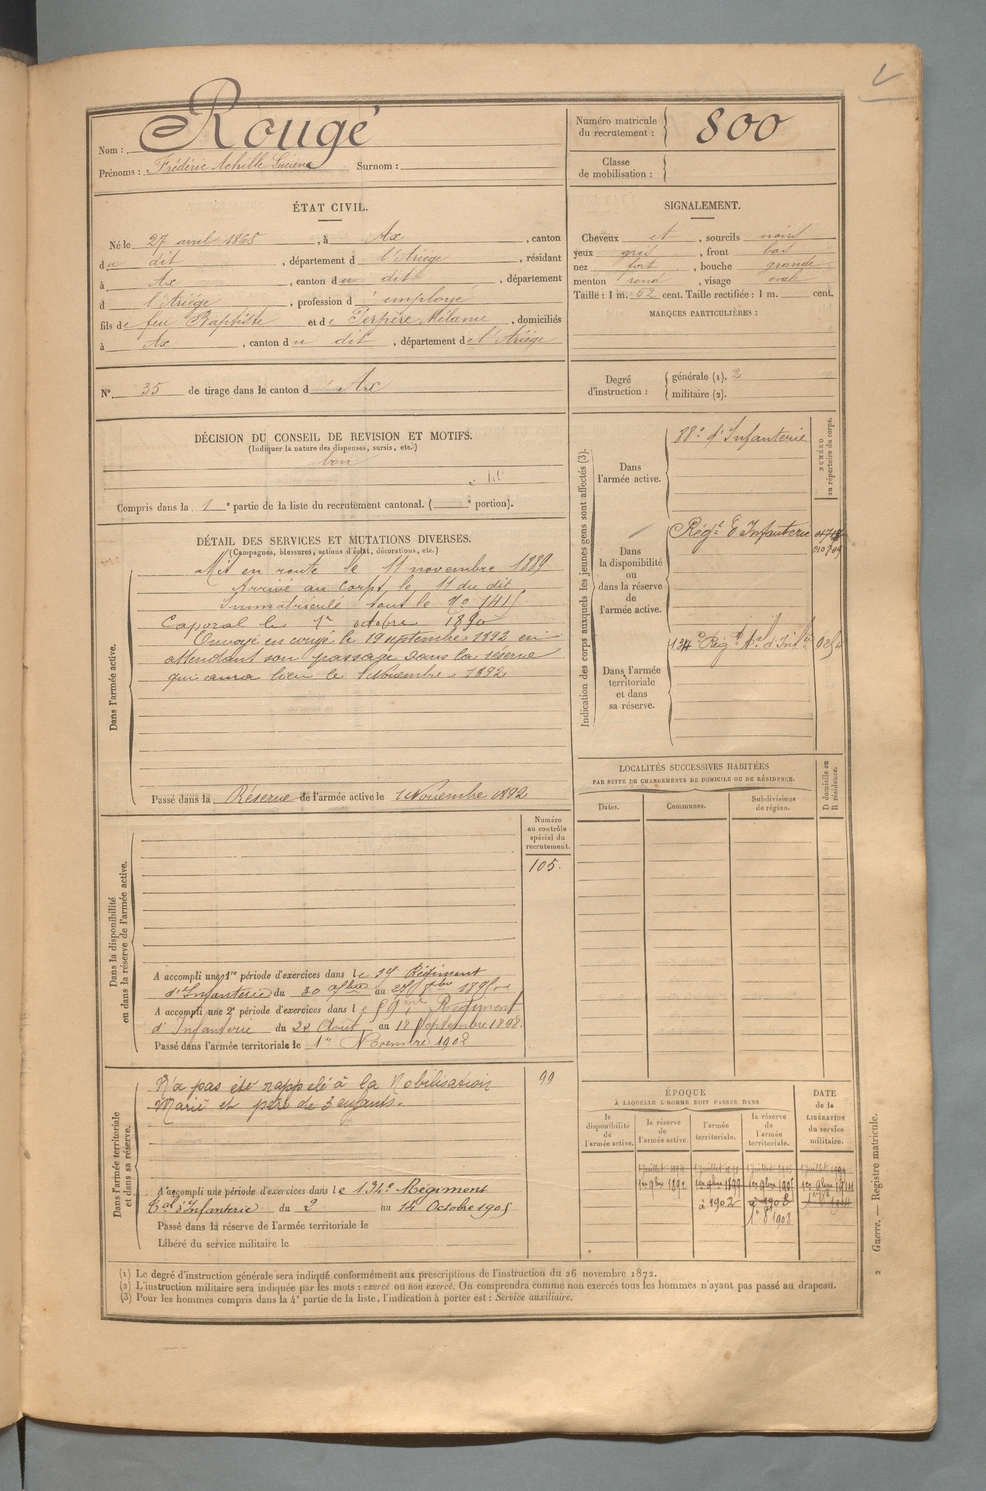 Nom : Rougé
Prénoms : Frédéric Achille Lucien Surnom :
Numéro matricule du recrutement : 800
Classe de mobilisation :
ÉTAT CIVIL.
Né le 27 avril 1868, à Ax, canton
du dit, département d l'Ariège, résidant
à Ax, canton du dit, département
d l'Ariège, profession d employé
fils de feu Baptiste et de Perpère Mélanie, domiciliés
à Ax, canton du dit, département de l'Ariège
N° 35 de tirage dans le canton d Ax
SIGNALEMENT.
Cheveux et, sourcils noirs
yeux gris, front bas
nez fort, bouche grande
menton rond, visage ovale
Taille : 1 m. 62 cent. Taille rectifiée : 1 m. cent.
MARQUES PARTICULIÈRES :
Degré d'instruction : générale (1). 2
militaire (2).
DÉCISION DU CONSEIL DE REVISION ET MOTIFS.
(Indiquer la nature des dispenses, sursis, etc.)
bon
Compris dans la 1e partie de la liste du recrutement cantonal. ( e portion).
DÉTAIL DES SERVICES ET MUTATIONS DIVERSES.
(Campagnes, blessures, actions d'éclat, décorations, etc.)
Dans l'armée active.
Mis en route le 11 novembre 1889
Arrivé au corps le 11 du dit
Immatriculé sous le No
Caporal le 1er octobre 1890
Envoyé en congé le 19 septembre 1892 en
attendant son passage dans la réserve
qui aura lieu le 1 Novembre 1892
Passé dans la Réserve de l'armée active le 1 Novembre 1892
Indication des corps auxquels les jeunes gens sont affectés (3).
NUMÉRO au répertoire du corps.
Dans l'armée active.
88e d'Infanterie
Dans la disponibilité ou dans la réserve de l'armée active.
Régt d'Infanterie
Dans l'armée territoriale et dans sa réserve.
134e Régt
LOCALITÉS SUCCESSIVES HABITÉES
PAR SUITE DE CHANGEMENTS DE DOMICILE OU DE RÉSIDENCE.
Dates. Communes. Subdivisions de région. D domicile ou R résidence.
Dans la disponibilité ou dans la réserve de l'armée active.
Numéro au contrôle spécial du recrutement.
105.
A accompli une 1re période d'exercices dans le Régiment
d'Infanterie du 30 au
A accompli une 2e période d'exercices dans le 59me Régiment
d'Infanterie du 22 Août au 18 Septembre 1898.
Passé dans l'armée territoriale le 1er Novembre 1902
Dans l'armée territoriale et dans sa réserve.
99
N'a pas été rappelé à la Mobilisation
Marié et père de 3 enfants.
A accompli une période d'exercices dans le 134e Régiment
Tal d'Infanterie du 2 au 14 Octobre 1905
Passé dans la réserve de l'armée territoriale le
Libéré du service militaire le
ÉPOQUE
À LAQUELLE L'HOMME DOIT PASSER DANS
la disponibilité de l'armée active.
la réserve de l'armée active.
l'armée territoriale.
la réserve de l'armée territoriale.
DATE de la LIBÉRATION du service militaire.
à 1902
à 1908
(1) Le degré d'instruction générale sera indiqué conformément aux prescriptions de l'instruction du 26 novembre 1872.
(2) L'instruction militaire sera indiquée par les mots : exercé ou non exercé. On comprendra comme non exercés tous les hommes n'ayant pas passé au drapeau.
(3) Pour les hommes compris dans la 4e partie de la liste, l'indication à porter est : Service auxiliaire.
2 Guerre. — Registre matricule.